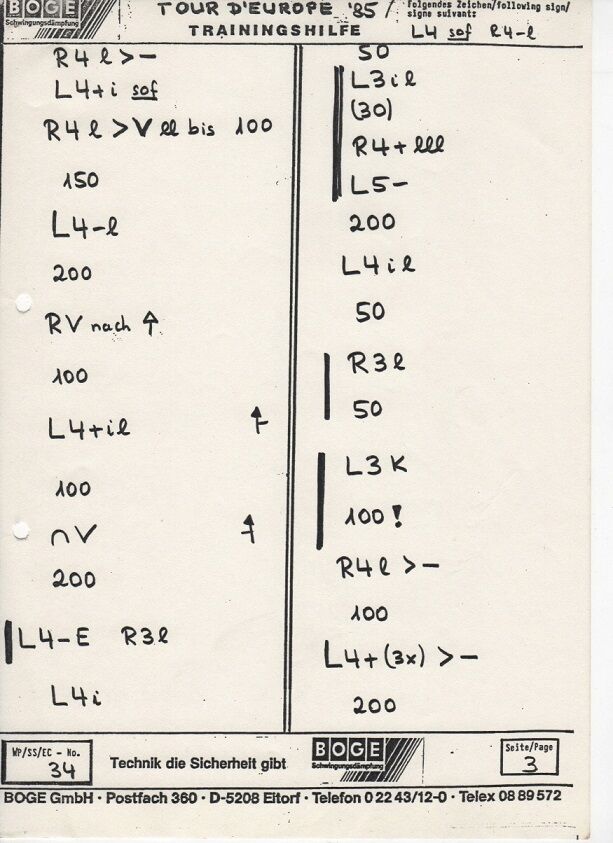 BOGE
Schwingungsdämpfung
TOUR D'EUROPE '85
TRAININGSHILFE
folgendes Zeichen/following sign/
signe suivant:
L4 sof R4-l
R4 l > -
L4+i sof
R4 l > V ll bis 100
150
L4-l
200
RV nach ↑
100
L4+il
100
∩V
200
L4-E R3l
L4i
50
L3il
(30)
R4+lll
L5-
200
L4il
50
R3l
50
L3K
100!
R4l > -
100
L4+(3x) > -
200
WP/SS/EC - No.
34
Technik die Sicherheit gibt
BOGE
Schwingungsdämpfung
Seite/Page
3
BOGE GmbH · Postfach 360 · D-5208 Eitorf · Telefon 0 22 43/12-0 · Telex 08 89 572